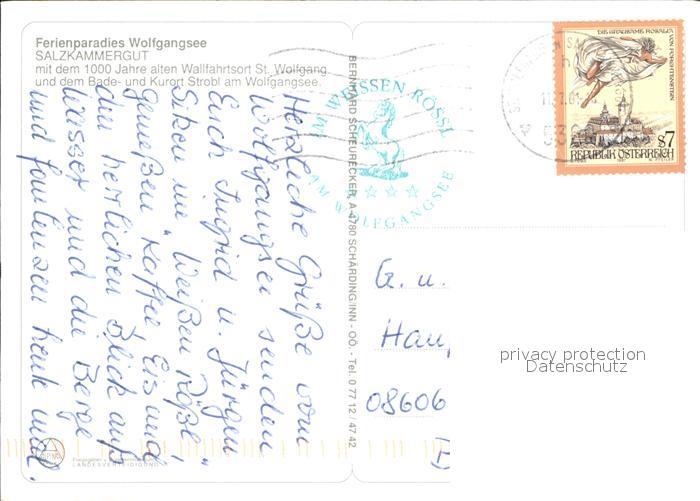 Ferienparadies Wolfgangsee
SALZKAMMERGUT
mit dem 1000 Jahre alten Wallfahrtsort St. Wolfgang
und dem Bade- und Kurort Strobl am Wolfgangsee.
Herzliche Grüße vom
Wolfgangsee senden
Euch Ingrid u. Jürgen
Sitzen im "Weißen Rößl",
genießen Kaffee, Eis und
den herrlichen Blick auf
Wasser und die Berge
und faulenzen heute mal.
BERNHARD SCHEURECKER, A-4780 SCHÄRDING/INN - OÖ. - Tel. 0 77 12 / 47 42
IM WEISSEN RÖSSL
AM WOLFGANGSEE
DIE GRAUSAME ROSALIA VON FORCHTENSTEIN
S7
REPUBLIK ÖSTERREICH
G. u.
Haup
08606
privacy protection
Datenschutz
LANDESVERTEIDIGUNG